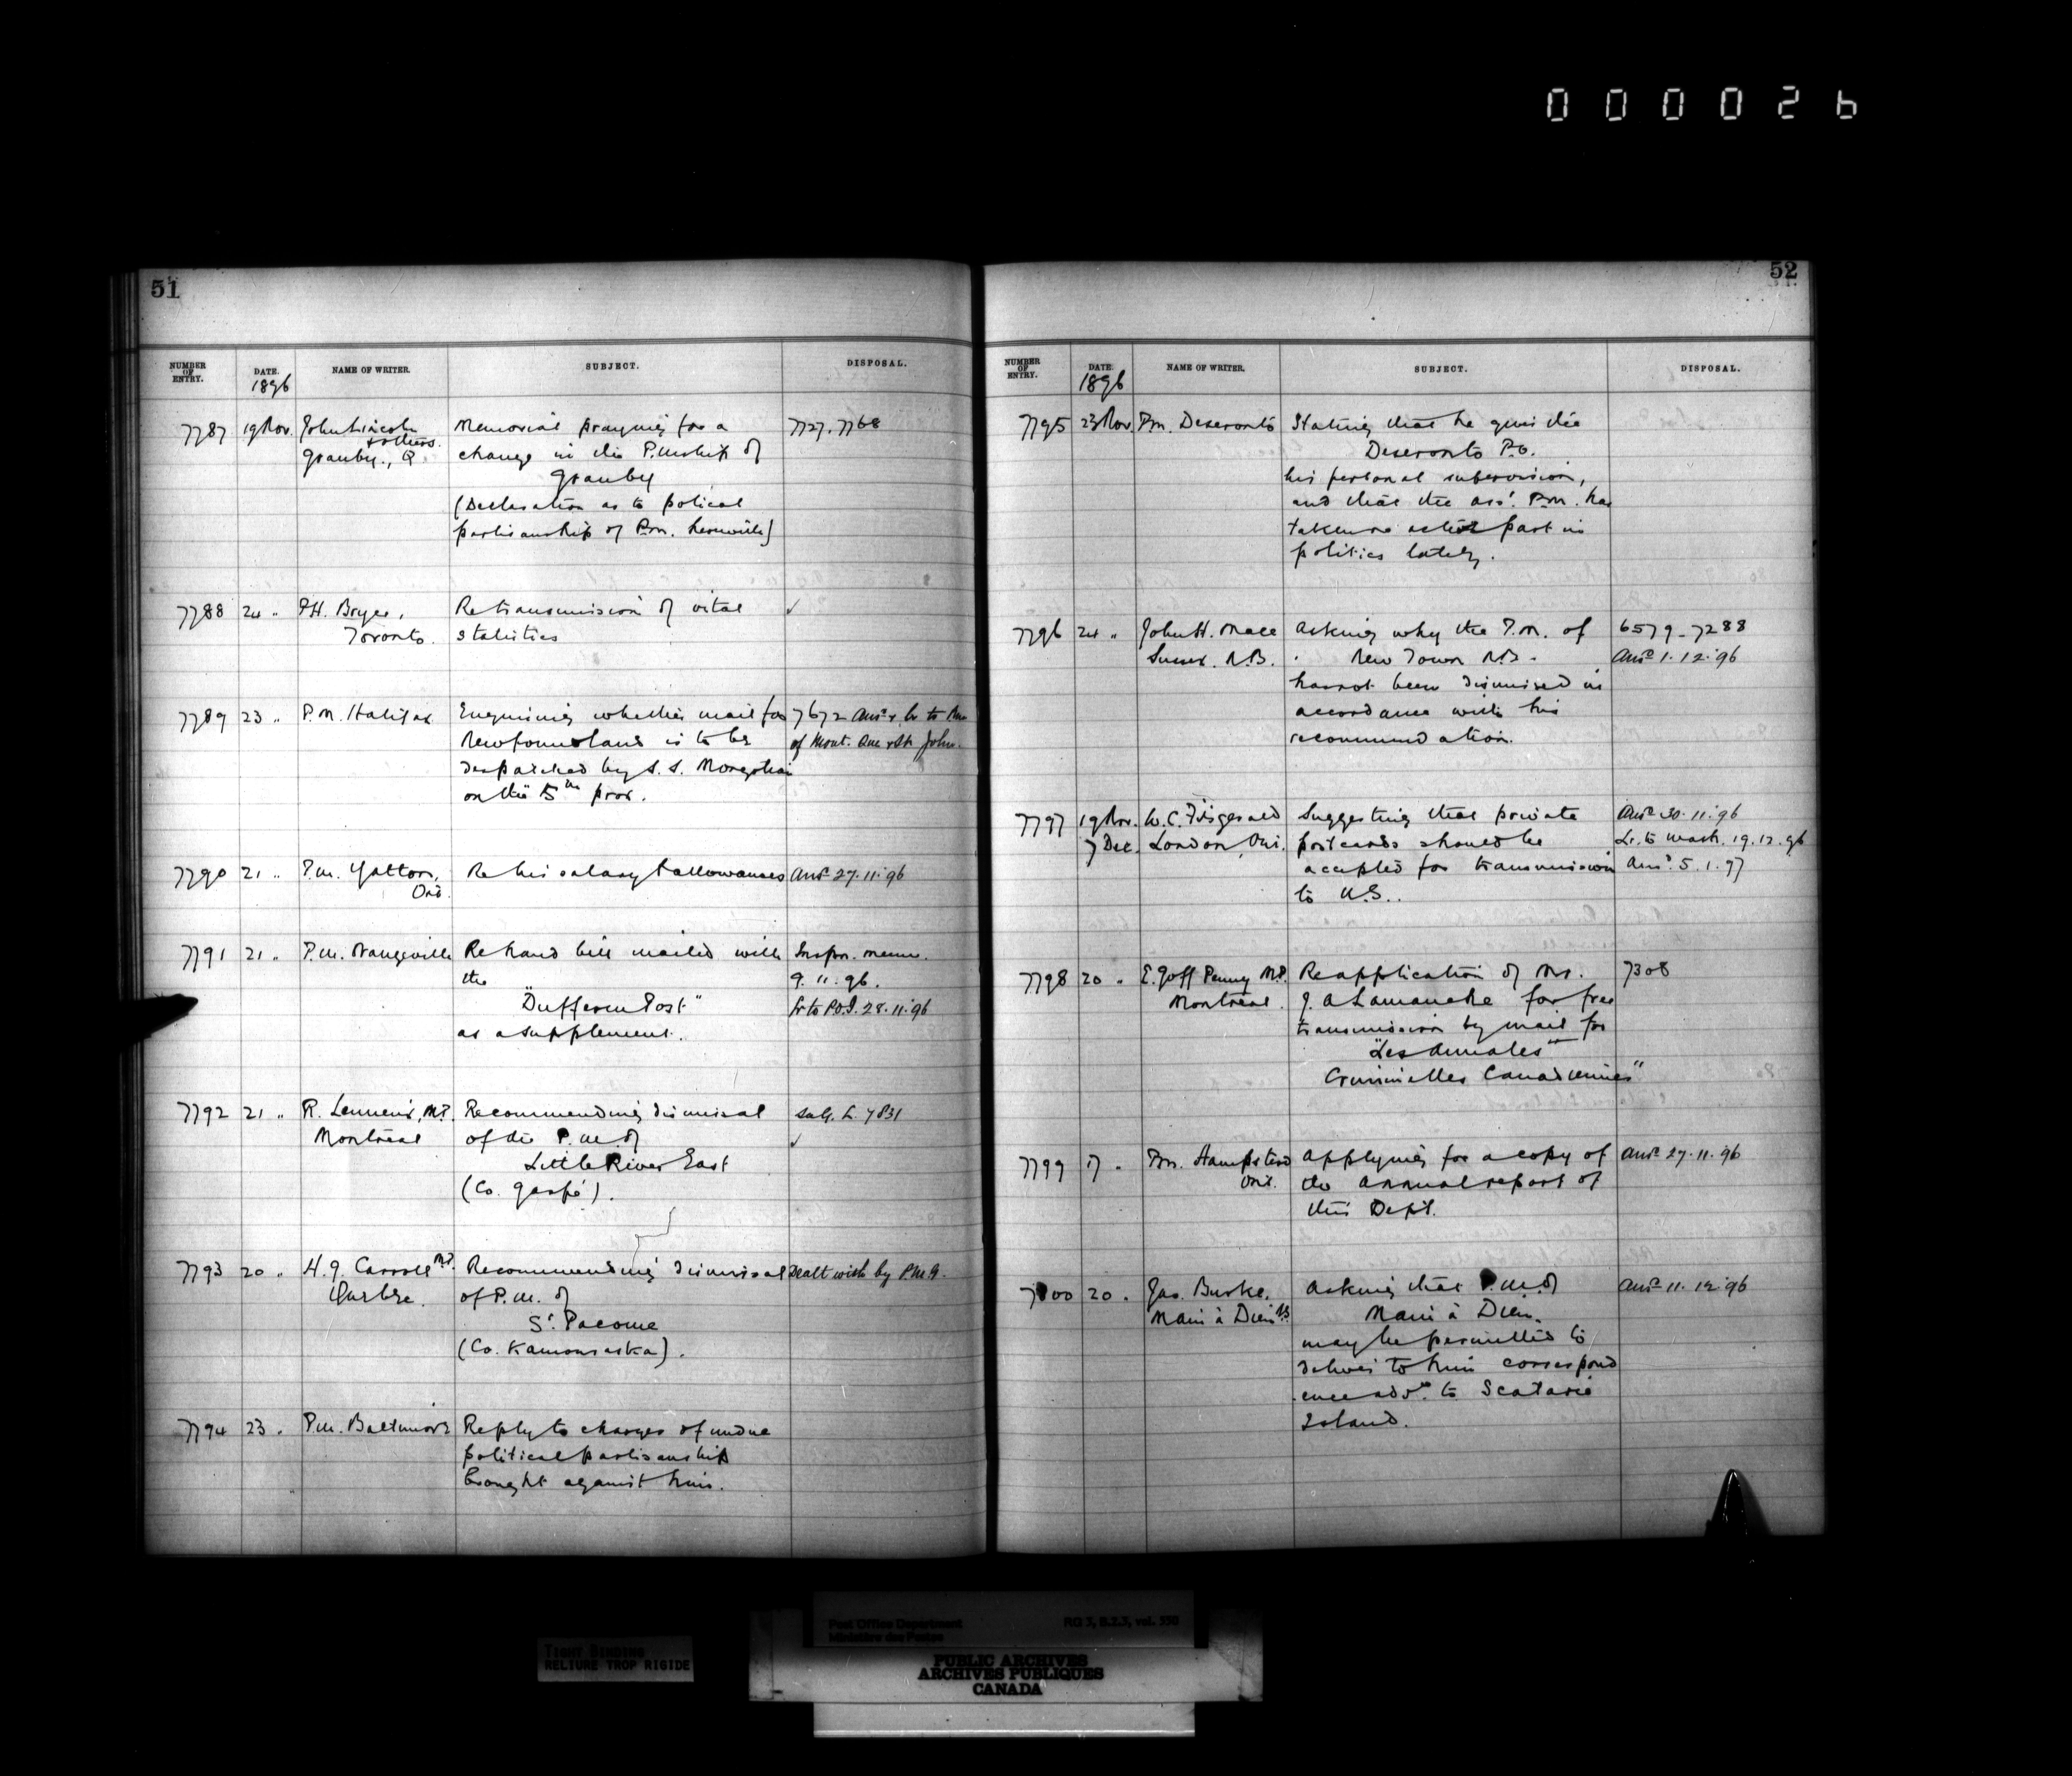 0 0 0 0 2 6
51
NUMBER OF ENTRY. DATE. NAME OF WRITER. SUBJECT. DISPOSAL.
1896
7787 19 Nov. John Lincoln Memorial praying for a 7727, 7768
& others change in the P.mship of
Granby., Q Granby
(Declaration as to polical
partisanship of P.m.
7788 24 " P.H. Bryce, Re transmission of vital ✓
Toronto. statistics
7789 23 " P.M. Halifax Enquiring whether mail for 7672 Ansd & lr to Pm
Newfoundland is to be of Mont. Que & St. John.
despatched by S.S. Mongolian
on the 5th prox.
7790 21 " P.m. Yatton, Re his salary & allowances Ansd 27.11.96
Ont.
7791 21 " P.m. Orangeville Re hand bill mailed with Inspr. memo.
the 9.11.96.
"Dufferin Post" lr to P.O.I. 28.11.96
as a supplement.
7792 21 " R. Lemieux, M.P. Recommending dismissal L. 7831
Montreal of the P.m. of ✓
Little River East
(Co. Gaspé).
7793 20 " H.G. Carroll M.P. Recommending dismissal Dealt with by P.M.G.
Quebec. of P.m. of
St. Pacome
(Co. Kamouraska).
7794 23 " P.m. Baltimore Reply to charges of undue
political partisanship
brought against him.
52
NUMBER OF ENTRY. DATE. NAME OF WRITER. SUBJECT. DISPOSAL.
1896
7795 23 Nov. Pm. Deseronto Stating that he gives the
Deseronto P.O.
his personal supervision,
and that the ass. P.m. has
taken no active part in
politics lately.
7796 24 " John H. Mace Asking why the P.M. of 6579-7288
Sussex. N.B. New Town N.B. Ansd 1.12.96
has not been dismissed in
accordance with his
recommendation.
7797 19 Nov. W.C. Fitzgerald Suggesting that private Ansd 30.11.96
7 Dec. London, Ont. postcards should be Lr. to Wash. 19.12.96
accepted for transmission Ansd. 5.1.97
to U.S..
7798 20 " E. Goff Penny M.P. Re application of Mr. 7308
Montreal. J. A Lamarche for free
transmission by mail for
"Les Annales
Criminelles Canadiennes"
7799 17 " Pm. Hampstead Applying for a copy of Ansd 27.11.96
Ont. the annual report of
this Dept.
7800 20 " Jas. Burke, Asking that P.m. of Ansd 11.12.96
Main à Dieu NS Main à Dieu
may be permitted to
deliver to him correspond
ence addd. to Scatarie
Island.
TIGHT BINDING
RELIURE TROP RIGIDE
Post Office Department RG 3, B.2.3, vol. 550
Ministère des Postes
PUBLIC ARCHIVES
ARCHIVES PUBLIQUES
CANADA